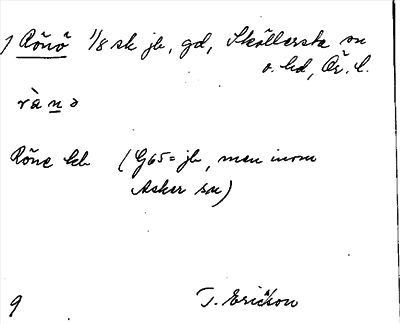 1 Rönö 1/8 sk jb, gd, Sköllersta sn
o. hd, Ör. l.
rànə
Röne Eb (G65= jb, men inom
Asker sn)
9 T. Ericsson